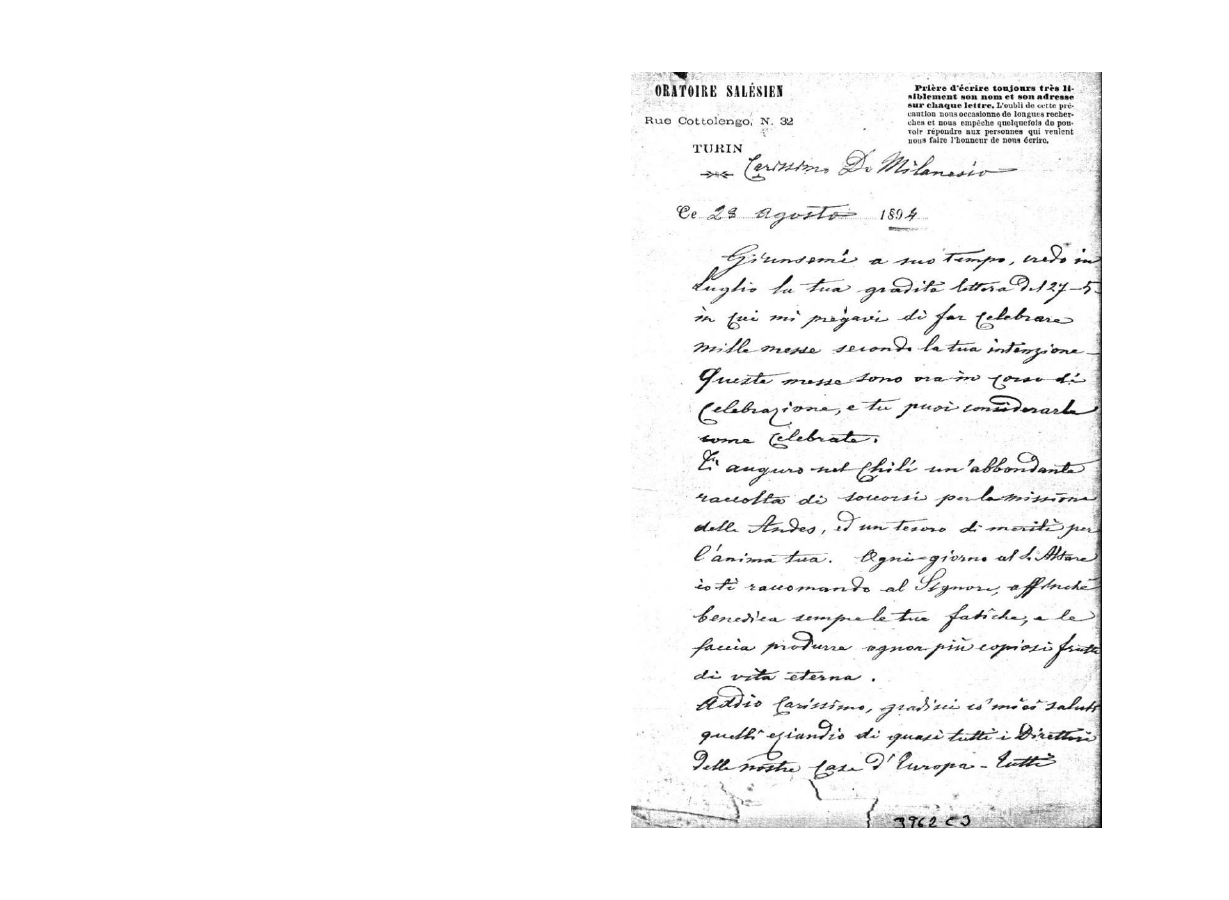 ORATOIRE SALÉSIEN
Rue Cottolengo, N. 32
TURIN
Prière d'écrire toujours très li-
siblement son nom et son adresse
sur chaque lettre. L'oubli de cette pré-
caution nous occasionne de longues recher-
ches et nous empêche quelquefois de pou-
voir répondre aux personnes qui veulent
nous faire l'honneur de nous écrire.
Carissimo D. Milanesio
Ce 23 Agosto 1894
Giunsemi a suo tempo, credo in
Luglio la tua gradita lettera del 27-5-
in cui mi pregavi di far celebrare
mille messe secondo la tua intenzione -
Queste messe sono ora in corso di
Celebrazione, e tu puoi considerarle
come celebrate.
Ti auguro nel Chilì un'abbondante
raccolta di soccorsi per la missione
delle Andes, ed un tesoro di meriti per
l'anima tua. Ogni giorno al S. Altare
io ti raccomando al Signore, affinché
benedica sempre le tue fatiche, e le
faccia produrre ognor più copiosi frutti
di vita eterna.
Addio Carissimo, gradisci co' miei saluti
quelli eziandio di quasi tutti i Direttori
delle nostre Case d'Europa - tutti
3962 C3